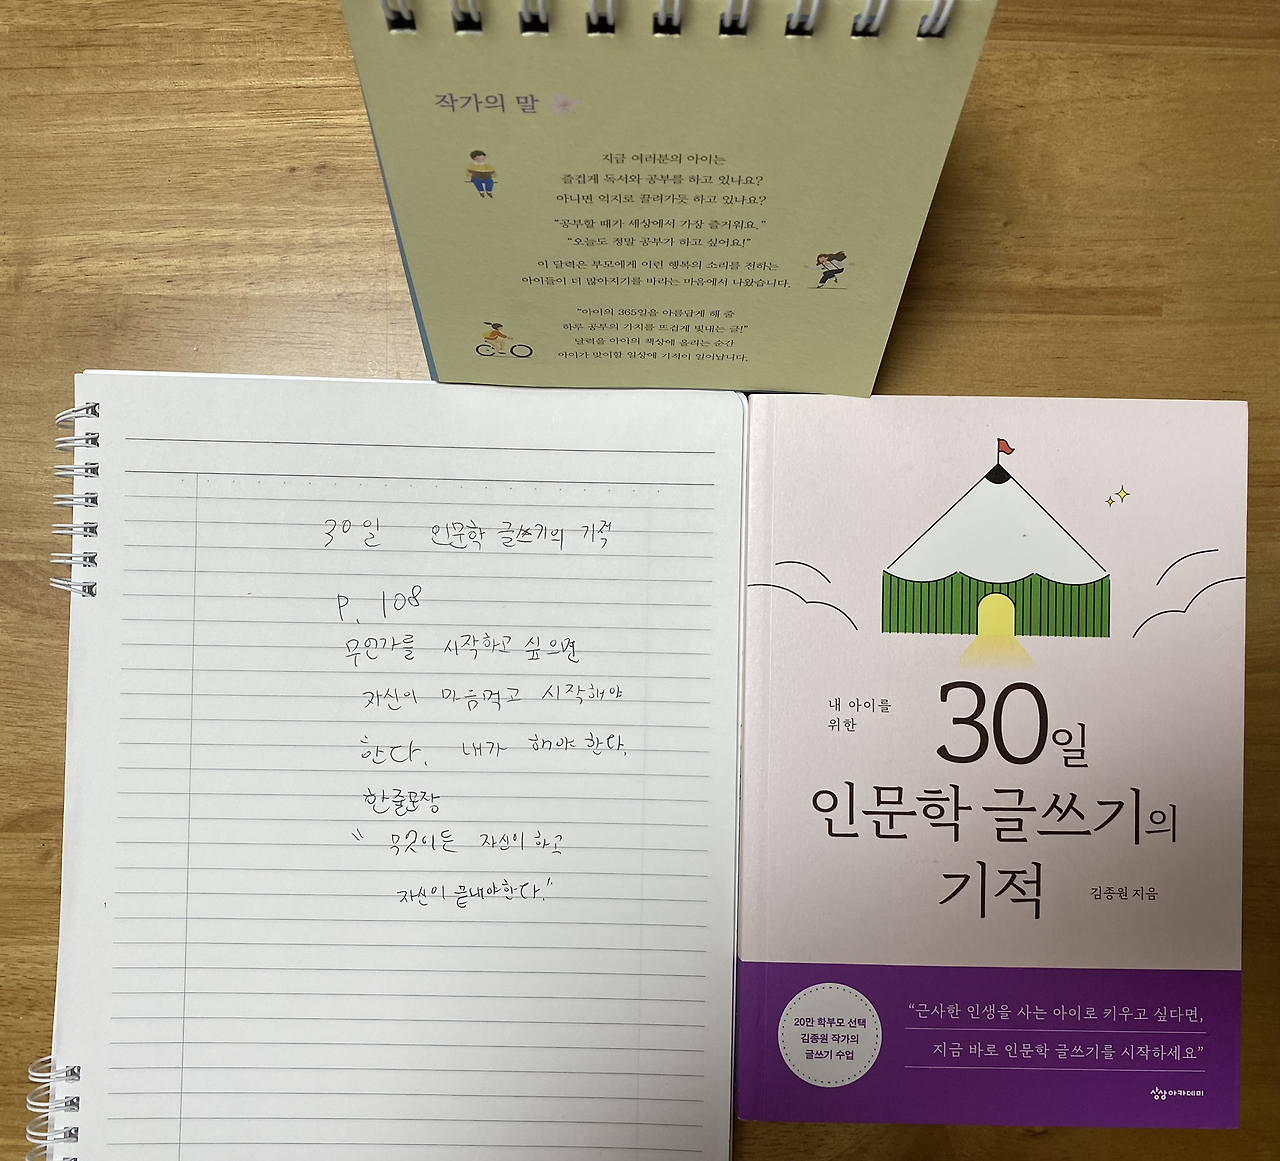 작가의 말
지금 여러분의 아이는
즐겁게 독서와 공부를 하고 있나요?
아니면 억지로 끌려가듯 하고 있나요?
"공부할 때가 세상에서 가장 즐거워요."
"오늘도 정말 공부가 하고 싶어요!"
이 달력은 부모에게 이런 행복의 소리를 전하는
아이들이 더 많아지기를 바라는 마음에서 나왔습니다.
"아이의 365일을 아름답게 해 줄
하루 공부의 가치를 뜨겁게 빛내는 글!"
달력을 아이의 책상에 올리는 순간
아이가 맞이할 일상에 기적이 일어납니다.
30일 인문학 글쓰기의 기적
P. 108
무언가를 시작하고 싶으면
자신이 마음먹고 시작해야
한다. 내가 해야 한다.
한줄문장
" 무엇이든 자신이 하고
자신이 끝내야한다."
내 아이를
위한
30일
인문학 글쓰기의
기적
김종원 지음
20만 학부모 선택
김종원 작가의
글쓰기 수업
"근사한 인생을 사는 아이로 키우고 싶다면,
지금 바로 인문학 글쓰기를 시작하세요"
상상아카데미